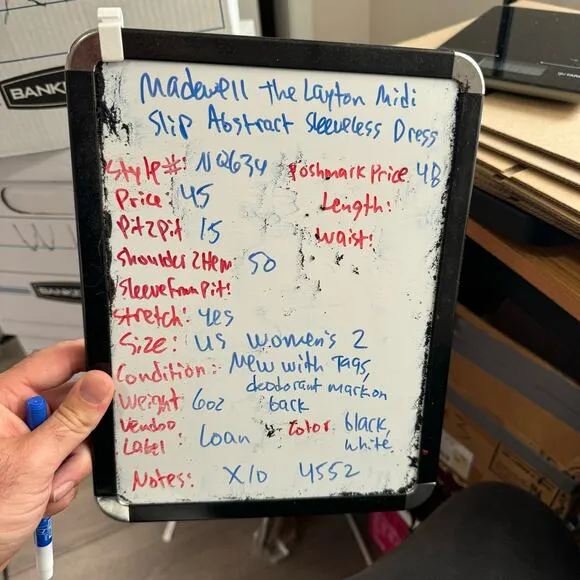 Madewell The Layton Midi
Slip Abstract Sleeveless Dress
Style#: NQ634 Poshmark Price 48
Price 45 Length:
Pit2Pit 15 Waist:
Shoulder2Hem: 50
SleeveFromPit:
Stretch: yes
Size: US Women's 2
Condition: New with Tags,
deodorant mark on
back
Weight 6oz
Vendoo
Label: Loan Color black,
white
Notes: X10 4552
BANK